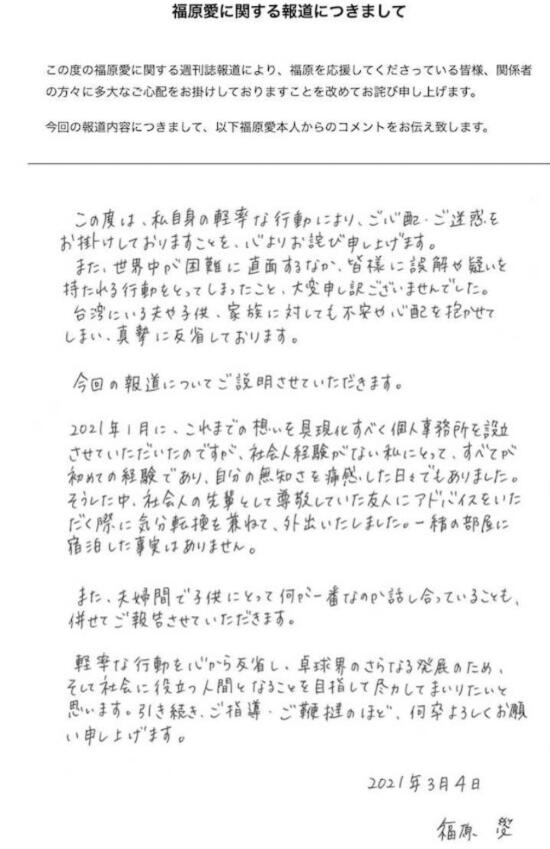 福原愛に関する報道につきまして
この度の福原愛に関する週刊誌報道により、福原を応援してくださっている皆様、関係者
の方々に多大なご心配をお掛けしておりますことを改めてお詫び申し上げます。
今回の報道内容につきまして、以下福原愛本人からのコメントをお伝え致します。
この度は、私自身の軽率な行動により、ご心配・ご迷惑を
お掛けしておりますことを、心よりお詫び申し上げます。
また、世界中が困難に直面するなか、皆様に誤解や疑いを
持たれる行動をとってしまったこと、大変申し訳ございませんでした。
台湾にいる夫や子供、家族に対しても不安や心配を抱かせて
しまい、真摯に反省しております。
今回の報道についてご説明させていただきます。
2021年1月に、これまでの想いを具現化すべく個人事務所を設立
させていただいたのですが、社会人経験がない私にとって、すべてが
初めての経験であり、自分の無知さを痛感した日々でもありました。
そうした中、社会人の先輩として尊敬していた友人にアドバイスをいた
だく際に気分転換を兼ねて、外出いたしました。一緒の部屋に
宿泊した事実はありません。
また、夫婦間で子供にとって何が一番なのか話し合っていることも、
併せてご報告させていただきます。
軽率な行動を心から反省し、卓球界のさらなる発展のため、
そして社会に役立つ人間となることを目指して尽力してまいりたいと
思います。引き続き、ご指導・ご鞭撻のほど、何卒よろしくお願
い申し上げます。
2021年3月4日
福原 愛